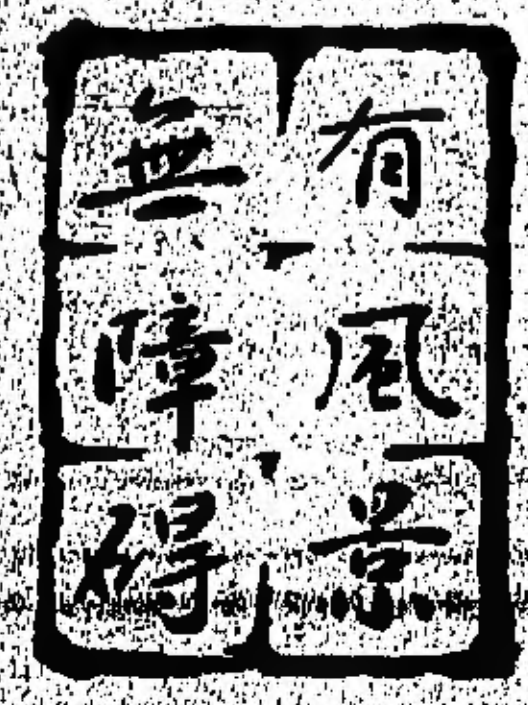 有風景
無障碍